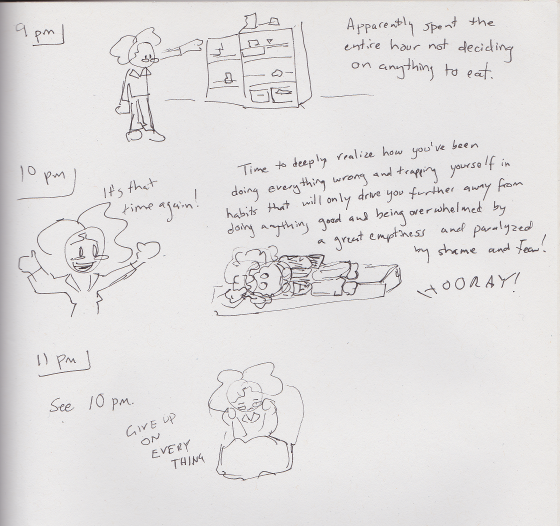 9 pm
Apparently spent the
entire hour not deciding
on anything to eat.
10 pm
It's that
time again!
Time to deeply realize how you've been
doing everything wrong and trapping yourself in
habits that will only drive you further away from
doing anything good and being overwhelmed by
a great emptiness and paralyzed
by shame and fear!
HOORAY!
11 pm
See 10 pm.
GIVE UP
ON
EVERY
THING